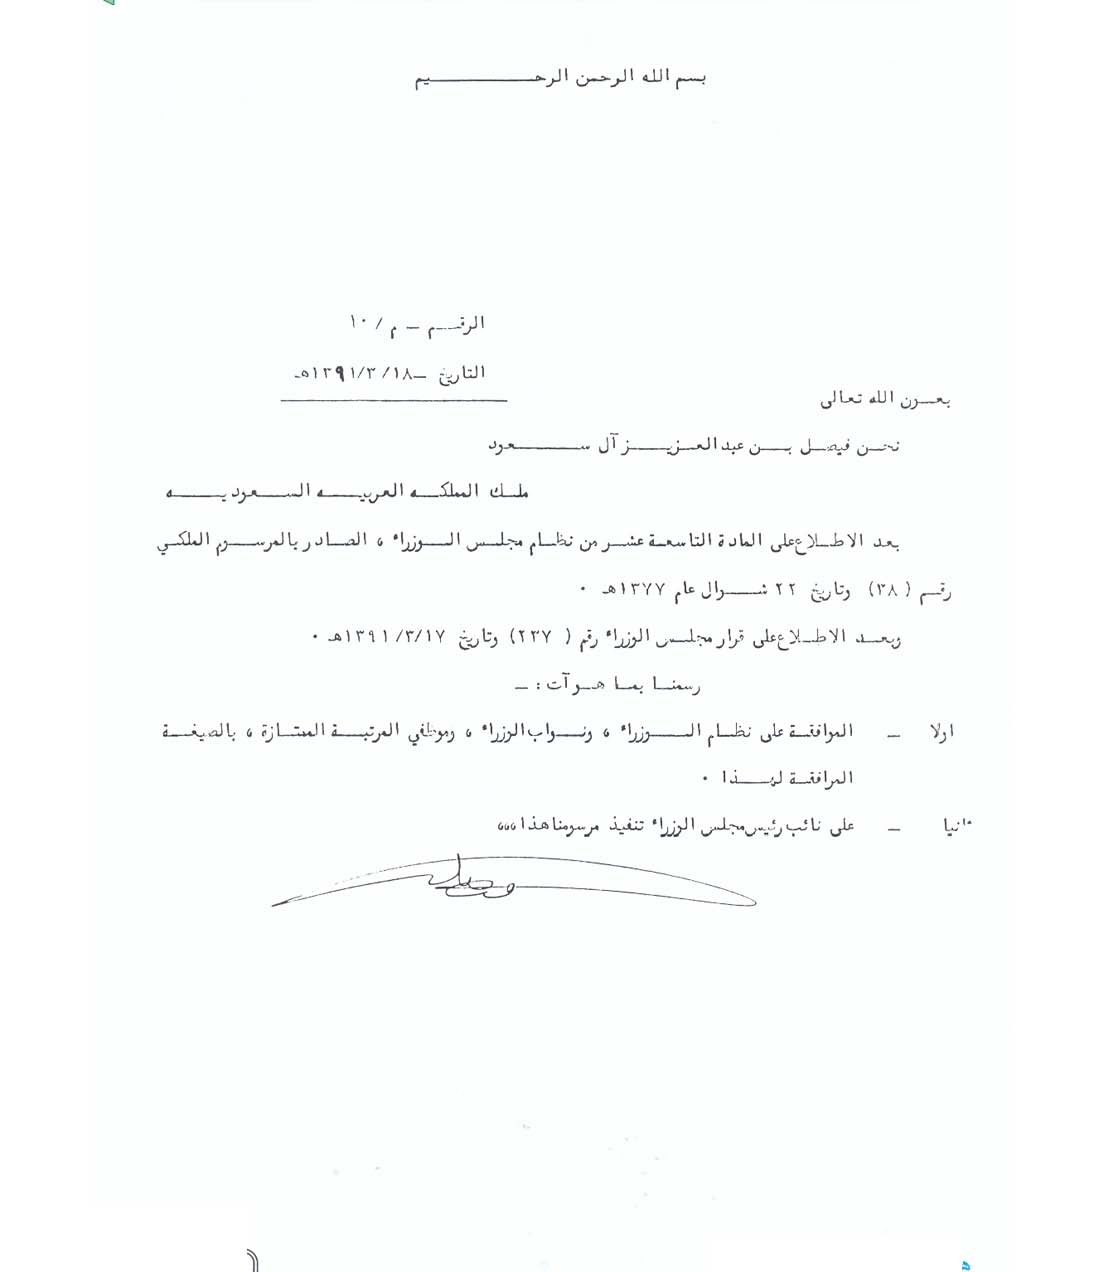 بسم الله الرحمن الرحيم
الرقم - م / ١٠
التاريخ - ١٣٩١/٣/١٨هـ
بعون الله تعالى
نحن فيصل بن عبد العزيز آل سعود
ملك المملكه العربيه السعوديه
بعد الاطلاع على المادة التاسعة عشر من نظام مجلس الوزراء ، الصادر بالمرسوم الملكي
رقم ( ٣٨ ) وتاريخ ٢٢ شوال عام ١٣٧٧هـ .
وبعد الاطلاع على قرار مجلس الوزراء رقم ( ٢٣٧ ) وتاريخ ١٣٩١/٣/١٧هـ .
رسمنا بما هو آت : -
اولا - الموافقة على نظام الوزراء ، ونواب الوزراء ، وموظفي المرتبة الممتازة ، بالصيغة
المرافقة لهذا .
ثانيا - على نائب رئيس مجلس الوزراء تنفيذ مرسومنا هذا ،،،
فيصل